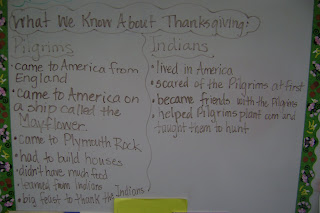 What We Know About Thanksgiving:
Pilgrims
• came to America from
England
• came to America on
a ship called the
Mayflower.
• came to Plymouth Rock
• had to build houses
• didn't have much food
• learned from Indians
• big feast to thank the Indians
Indians
• lived in America
• scared of the Pilgrims at first
• became friends with the Pilgrims
• helped Pilgrims plant corn and
taught them to hunt